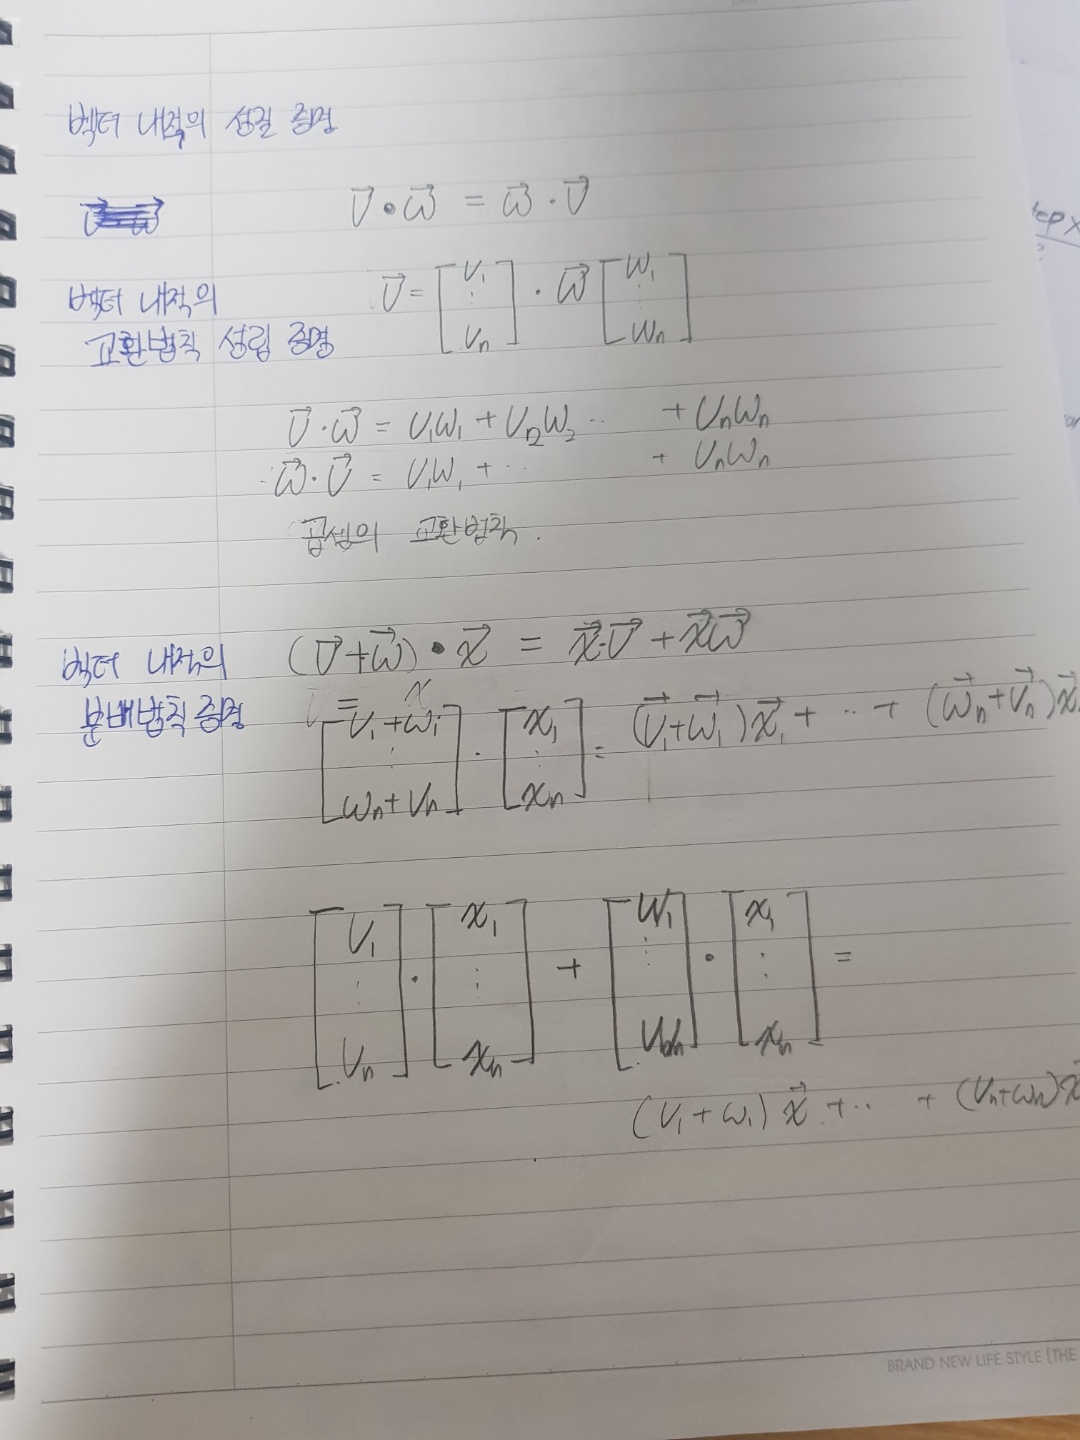 벡터 내적의 성질 증명
v⃗·w⃗ = w⃗·v⃗
벡터 내적의
교환법칙 성립 증명
v⃗= [v₁ ⋮ vₙ] · w⃗ [w₁ ⋮ wₙ]
v⃗·w⃗ = v₁w₁ + v₂w₂ ·· + vₙwₙ
w⃗·v⃗ = v₁w₁ + ·· + vₙwₙ
곱셈의 교환법칙.
벡터 내적의
분배법칙 증명
(v⃗+w⃗)·x⃗ = x⃗·v⃗ + x⃗w⃗
[v₁+w₁ ⋮ wₙ+vₙ] · [x₁ ⋮ xₙ] = (v⃗₁+w⃗₁)x⃗₁ + ·· + (w⃗ₙ+v⃗ₙ)x⃗
[v₁ ⋮ vₙ] · [x₁ ⋮ xₙ] + [w₁ ⋮ wₙ] · [x₁ ⋮ xₙ] =
(v₁+w₁)x⃗ +·· + (vₙ+wₙ)x⃗
BRAND NEW LIFE STYLE [THE